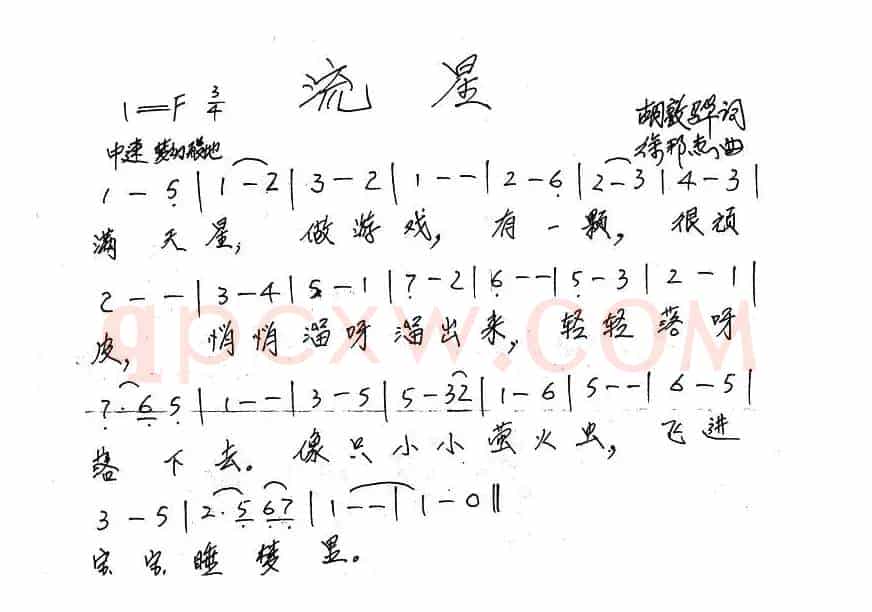 流星
1=F 3/4
胡敦骅词
中速 梦幻般地
徐邦杰曲
1 - 5 | 1 - 2 | 3 - 2 | 1 - - | 2 - 6 | 2 - 3 | 4 - 3 |
满天星,做游戏,有一颗,很顽
2 - - | 3 - 4 | 5 - 1 | 7 - 2 | 6 - - | 5 - 3 | 2 - 1 |
皮,悄悄溜呀溜出来,轻轻落呀
7 · 6 5 | 1 - - | 3 - 5 | 5 - 32 | 1 - 6 | 5 - - | 6 - 5 |
落下去。像只小小萤火虫,飞进
3 - 5 | 2 · 5 67 | 1 - - | 1 - 0 ‖
宝宝睡梦里。
qpcxw.com